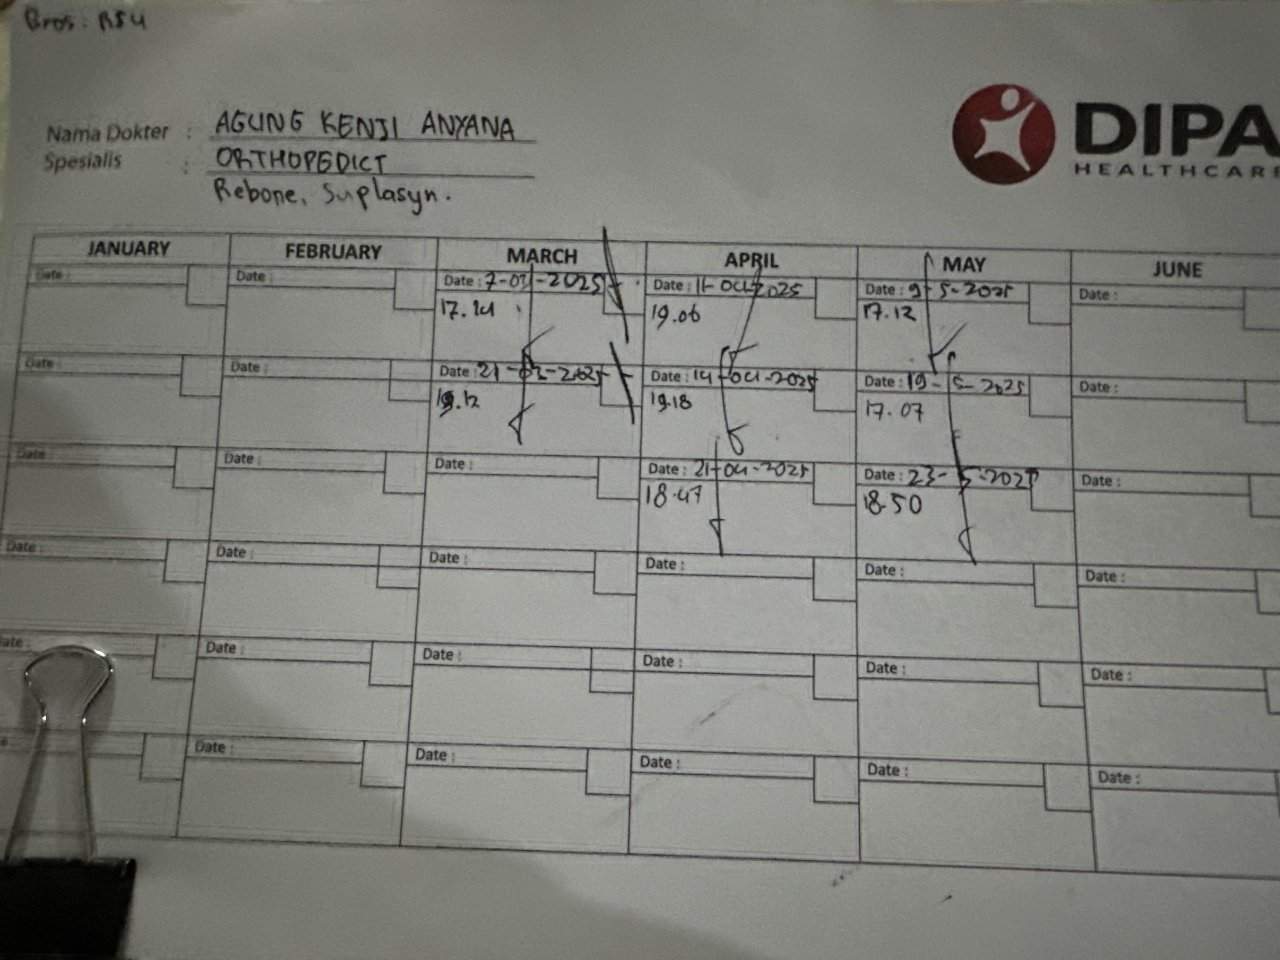 Bros: RSU
Nama Dokter : AGUNG KENJI ANYANA
Spesialis : ORTHOPEDICT
Rebone, Suplasyn.
DIPA
HEALTHCARE
JANUARY FEBRUARY MARCH APRIL MAY JUNE
Date : Date : Date : 7-03-2025 Date : 11-04-2025 Date : 9-5-2025 Date :
17.24 19.06 17.12
Date : Date : Date : 21-03-2025 Date : 14-04-2025 Date : 19-5-2025 Date :
19.12 19.18 17.07
Date : Date : Date : Date : 21-04-2025 Date : 23-5-2025 Date :
18.47 18.50
Date : Date : Date : Date : Date : Date :
Date : Date : Date : Date : Date : Date :
Date : Date : Date : Date : Date :